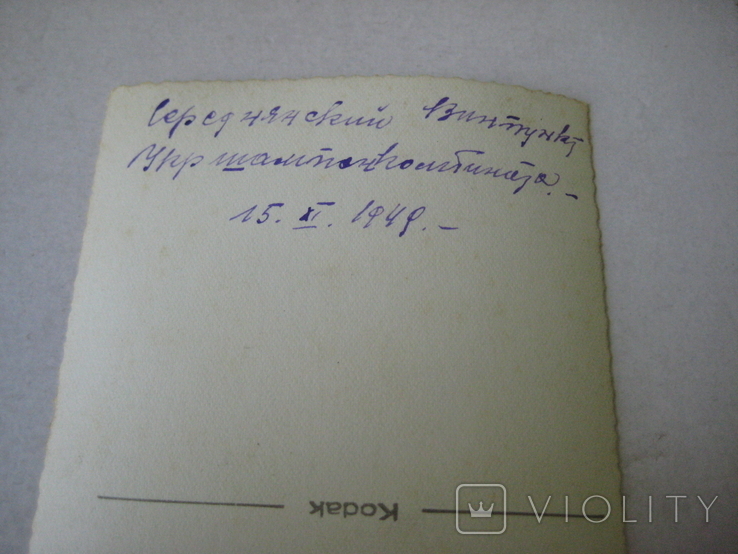 Середнянский Винпункт
Укршампанкомбината. –
15. XI. 1949. –
Kodak
VIOLITY